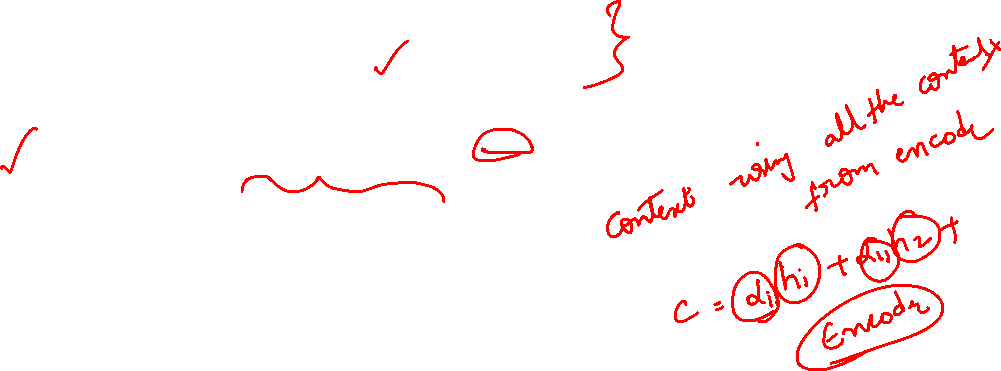 context using all the context
from encode
c = αi hi + αii h2 +
Encode